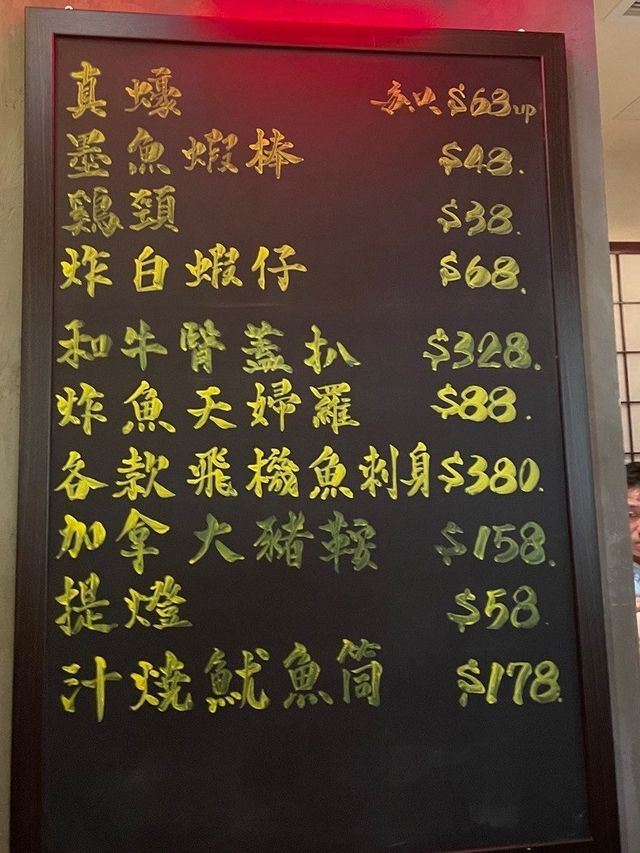 真蠔 每只 $63up
墨魚蝦棒 $43.
鷄頸 $38.
炸白蝦仔 $68.
和牛臀蓋扒 $328.
炸魚天婦羅 $88.
各款飛機魚刺身 $380.
加拿大豬鞍 $158.
提燈 $58.
汁燒魷魚筒 $178.